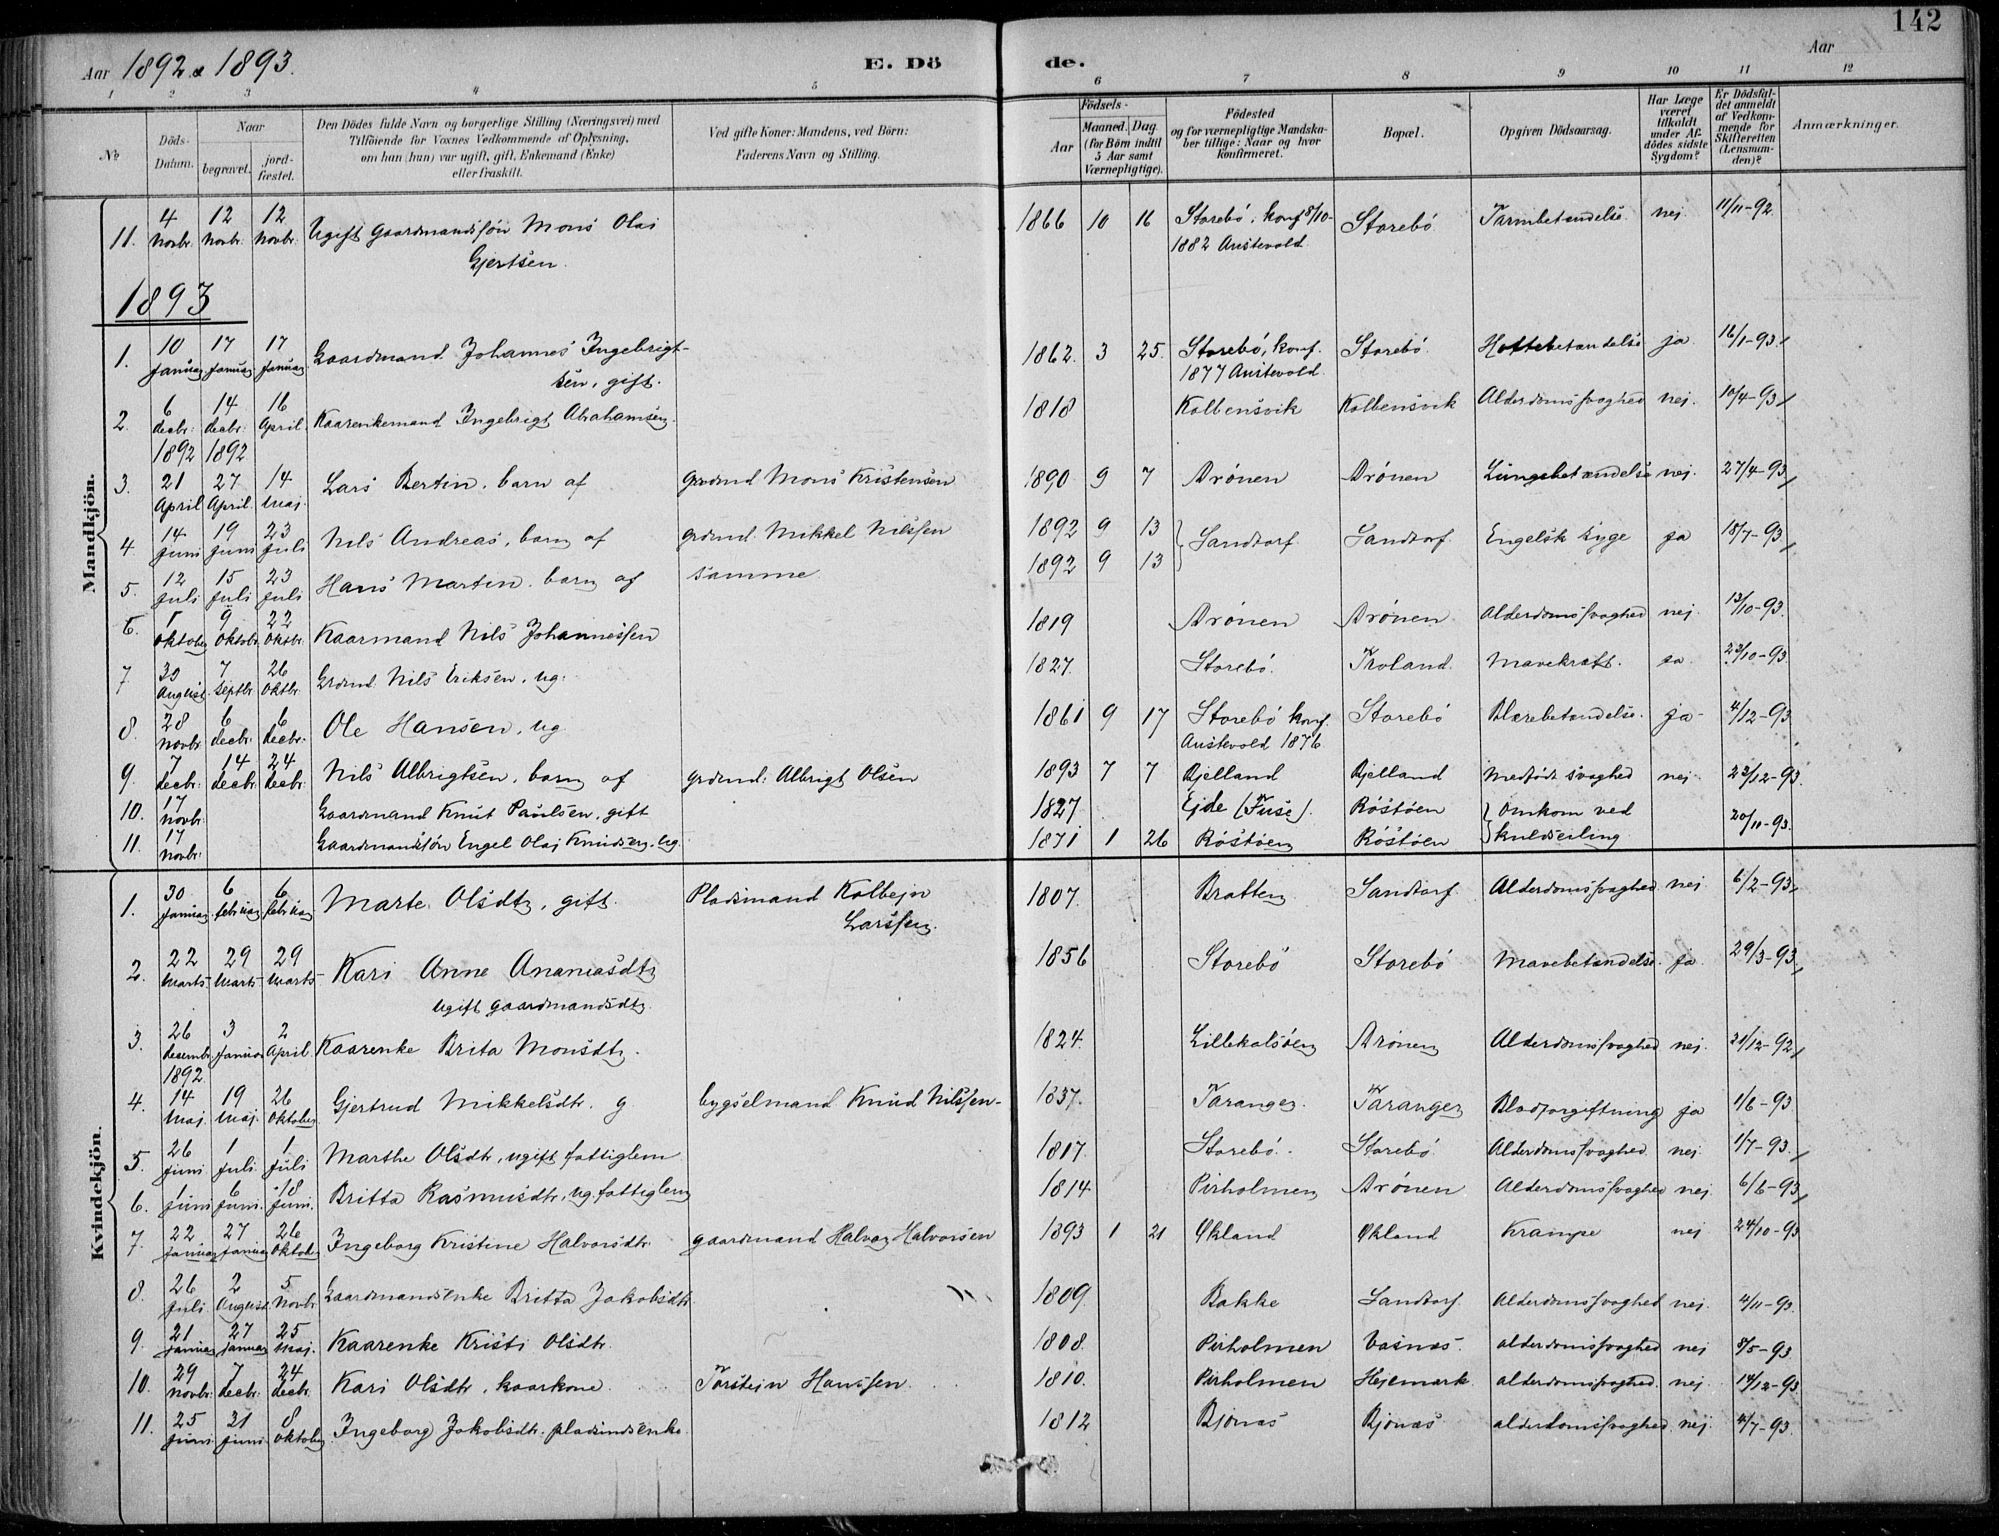 142
Aar 1892 & 1893.
E. Döde.
Aar
1 2 3 4 5 6 7 8 9 10 11 12
№
Döds-Datum.
Naar
begravet.
jordfæstet.
Den Dödes fulde Navn og borgerlige Stilling (Næringsvei) med
Tilföiende for Voxnes Vedkommende af Oplysning,
om han (hun) var ugift, gift, Enkemand (Enke)
eller fraskilt.
Ved gifte Koner: Mandens, ved Börn:
Faderens Navn og Stilling.
Födsels-
Aar
Maaned. Dag.
(for Börn indtil
5 Aar samt
Værnepligtige).
Födested
og for værnepligtige Mandskaber
tillige: Naar og hvor
konfirmeret.
Bopæl.
Opgiven Dödsaarsag.
Har Læge
været
tilkaldt
under Afdödes
sidste
Sygdom?
Er Dödsfaldet
anmeldt
af Vedkommende
for
Skifteretten
(Lensmanden)?
Anmærkninger.
Mandkjön.
11. 4 Novbr. 12 Novbr. 12 Novbr. Ugift gaardmandssön Mons Olai Gjertsen. 1866 10 16 Storebö, konf 8/10-1882 Austevold Storebö Tarmbetændelse. nej 11/11-92.
1893
1. 10 Januar 17 Januar 17 Januar Gaardmand Johannes Ingebrigtsen, gift. 1862. 3 25. Storebö, konf. 1877 Austevold Storebö. Hoftebetændelse ja 16/1-93
2. 6 decbr. 1892 14 decbr. 1892 16 April. Kaarenkemand Ingebrigt Abrahamsen. 1818 Kolbensvik Kolbensvik Alderdomssvaghed nej. 10/4-93
3. 21 April 27 April. 14 Maj. Lars Bertin, barn af grdmd Mons Kristensen 1890 9 7 Drönen Drönen Lungebetændelse nej. 27/4-93
4. 14 Juni 19 Juni 23 Juli Nils Andreas, barn af grdmd. Mikkel Nilssen 1892 9 13 Sandtorf. Sandtorf. Engelsk Syge ja 18/7-93
5. 12 Juli 15 Juli 23 Juli Hans Martin. barn af samme 1892 9 13
6. Oktober 9 Oktobr. 22 Oktbr. Kaarmand Nils Johannessen 1819 Drönen Drönen. Alderdomssvaghed nej. 13/10-93.
7 30 August. 7 Septbr. 26 Oktbr. Grdmd. Nils Eriksen, ug. 1827. Storebö. Troland. Mavekræft. ja. 23/10-93.
8. 28 Novbr. 6 decbr. 6 decbr. Ole Hansen, ug 1861 9 17 Storebö konf. Austevold 1876 Storebö Blærebetændelse. ja- 4/12-93
9. 7 decbr. 14 decbr. 24 decbr. Nils Albrigtsen, barn af grdmd: Albrigt Olsen 1893 7 7 Bjelland Bjelland Medfödt svaghed nej 23/12-93.
10. 17 Novbr. Gaardmand Knut Paulsen, gift 1827. Ejde (Fuse). Röstöen Omkom ved kuldseiling 20/11-93.
11. 17 Novbr. Gaardmandssön Engel Olai Knudsen. ug. 1871 1 26 Röstöen Röstöen
Kvindekjön.
1. 30 Januar 6 februar 6 februar Marte Olsdtr, gift. Pladsmand Kolbejn Larssen. 1807. Bratten Sandtorf. Alderdomssvaghed nej 6/2-93
2. 22 Marts 29 Marts 29 Marts Kari Anne Ananiasdtr ugift gaardmandsdtr. 1856 Storebö Storebö Mavebetændelse. ja. 29/3-93
3. 26 desembr. 1892 3 Januar 2 April. Kaarenke Brita Monsdtr. 1824. Lillekalsöen Drönen Alderdomssvaghed nej. 21/12-92
4. 14 Maj. 19 Maj. 26 Oktober Gjertrud Mikkelsdtr. g bygselmand Knud Nilssen- 1837. Taranger. Taranger Blodforgiftning ja 1/6-93.
5. 26 Juni. 1 Juli. 1 Juli Marthe Olsdtr, ugift fattiglem 1817. Storebö. Storebö. Alderdomssvaghed. nej. 1/7-93.
6. 1 Juni 6 Juni. 18 Juni. Britta Rasmusdtr, ug. fattiglem 1814. Pirholmen Drönen Alderdomssvaghed nej 6/6-93
7. 22 Januar 27 Januar 26 Oktober Ingeborg Kristine Halvorsdtr gaardmand Halvor Halvorsen 1893 1 21 Økland Økland Krampe nej 24/10-93
8. 26 Juli. 2 August. 5 Novbr. Gaardmandsenke Britta Jakobsdtr. 1809. Bakke Sandtorf. Alderdomssvaghed nej. 4/11-93.
9. 21 Januar 27 Januar 25 Maj. Kaarenke Kristi Olsdtr. 1808. Pirholmen Vasnæs. alderdomssvaghed. nej 8/5-93.
10. 29 Novbr. 7 decbr. 24 decbr. Kari Olsdtr, kaarkone. Torstein Hanssen. 1810. Pirholmen Hejemark. alderdomssvaghed. nej. 14/12-93.
11. 25 Juni. 31 Juni. 8 Oktober Ingeborg Jakobsdtr. pladsmdsenke. 1812 Bjönæs Bjönæs alderdomssvaghed. nej. 4/7-93.